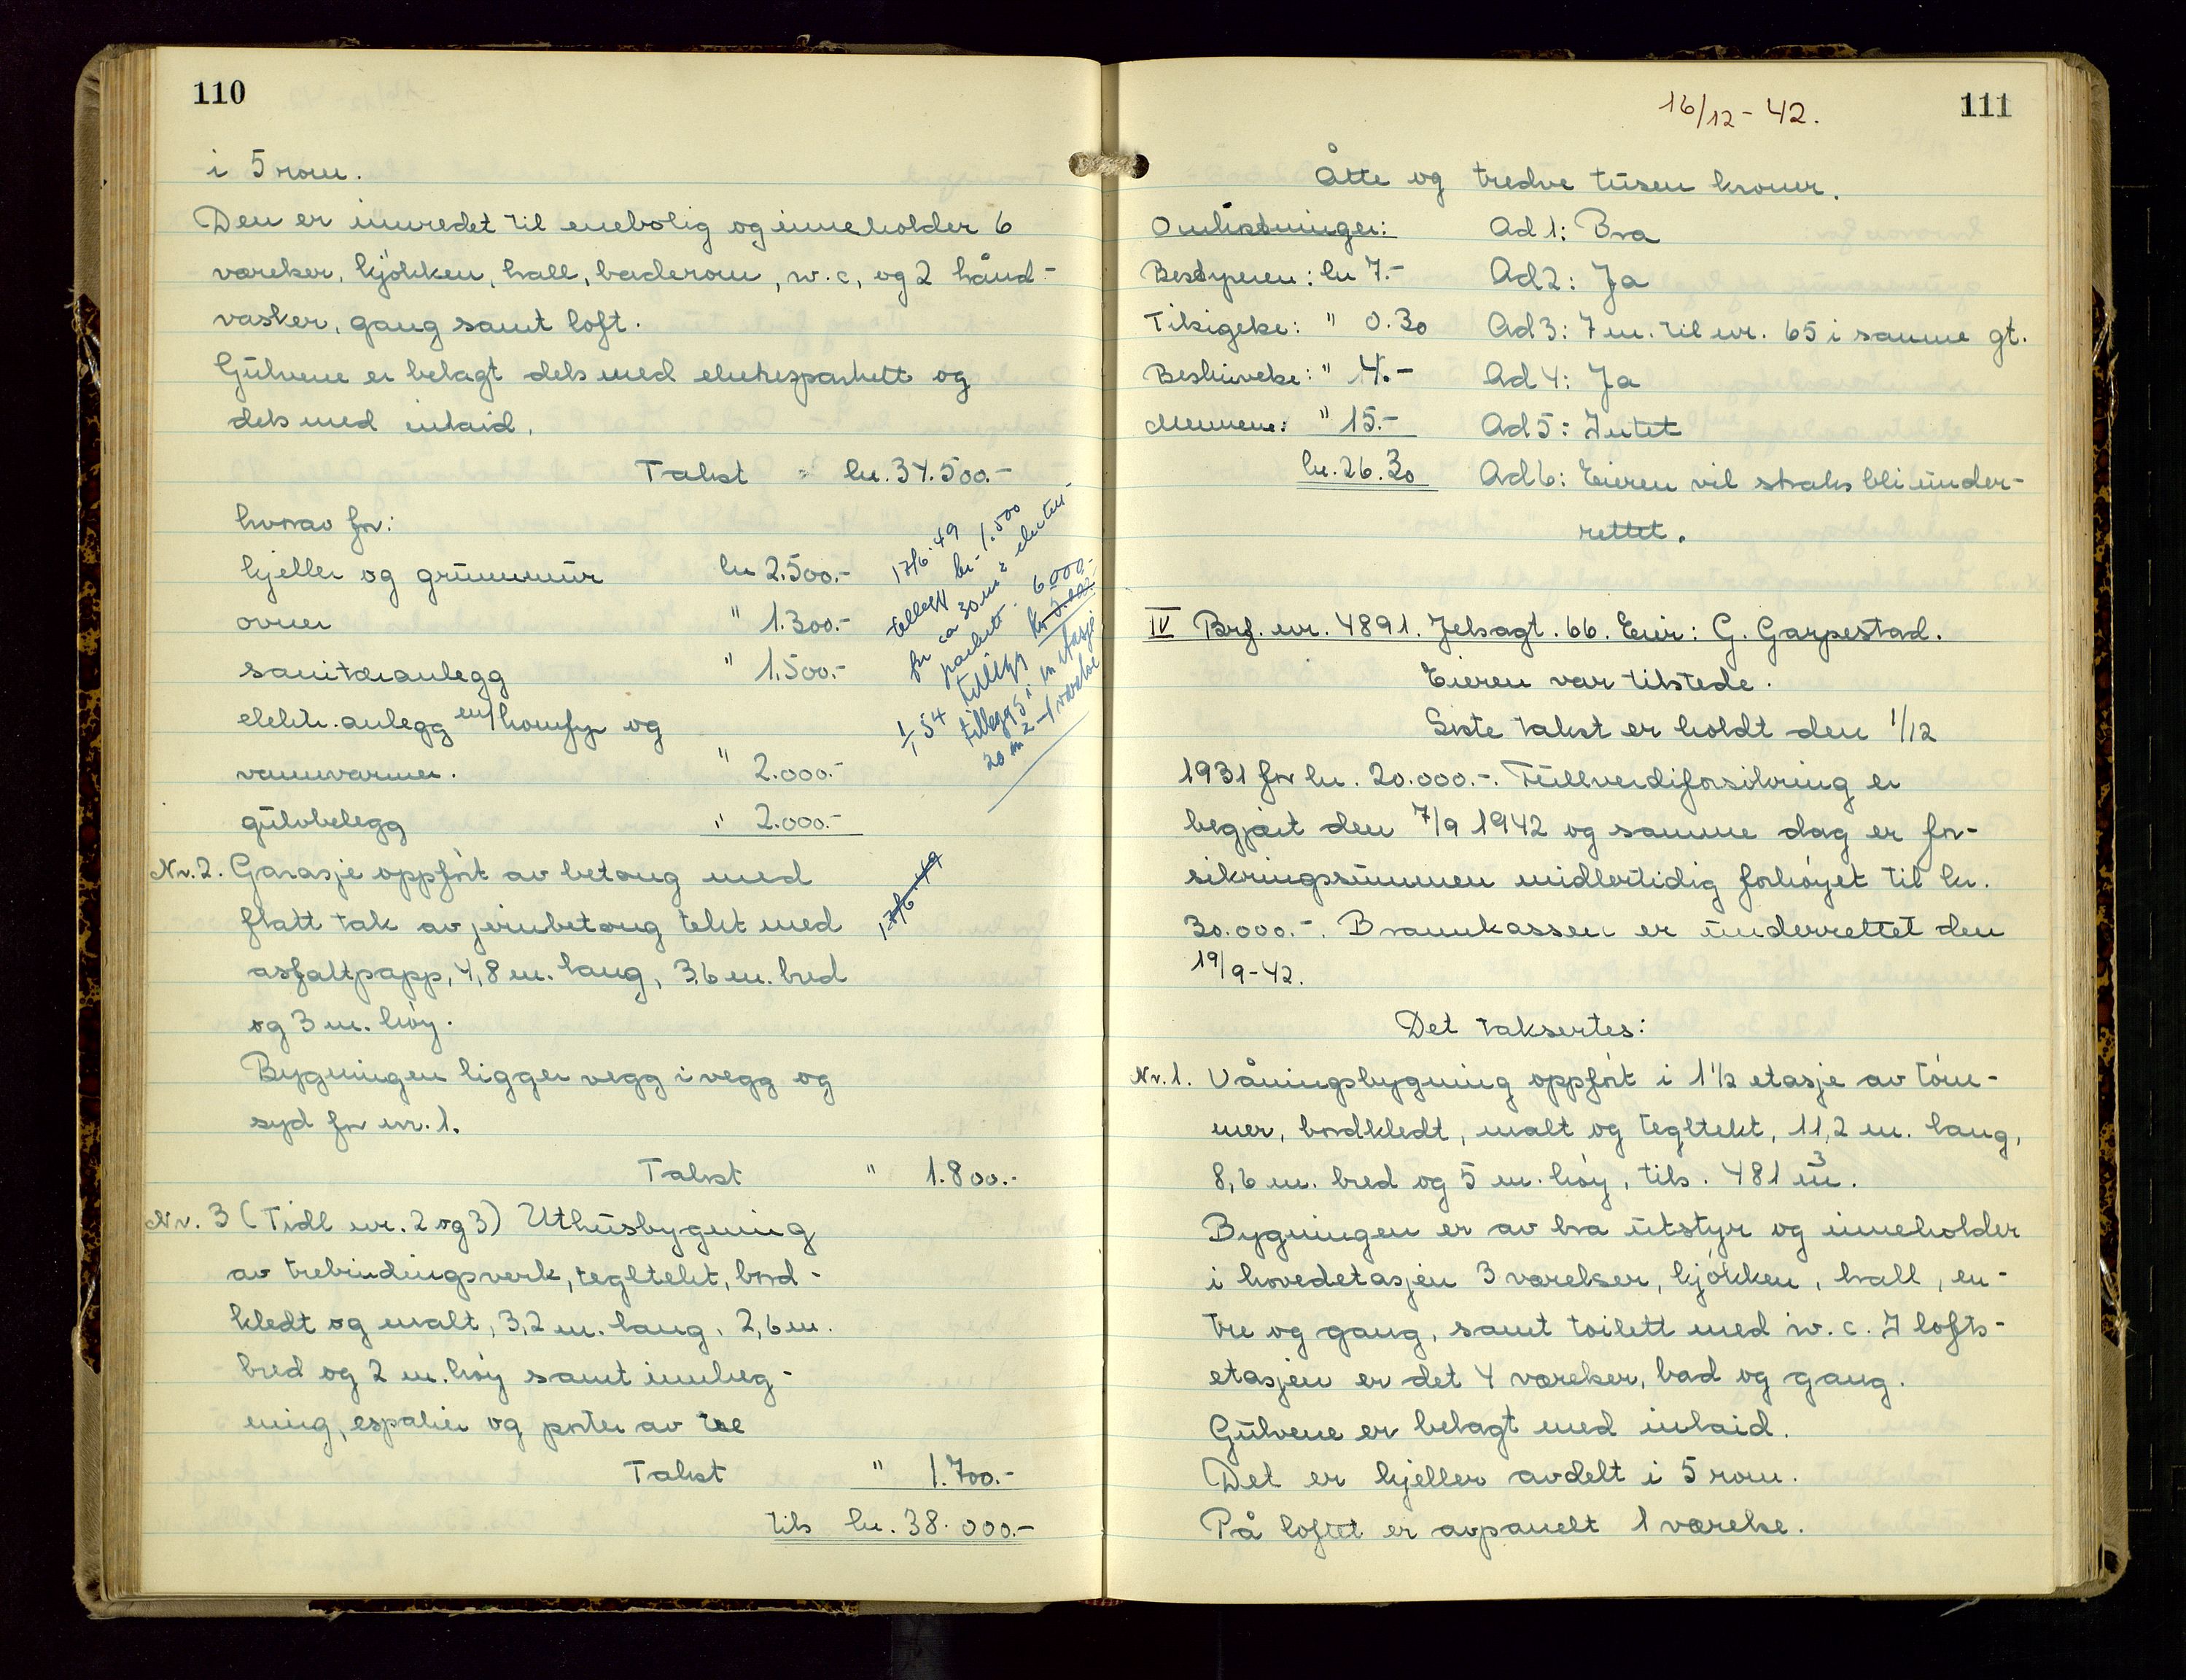 110
i 5 rom.
Den er innredet til enebolig og inneholder 6
værelser, kjøkken, hall, baderom, w.c, og 2 hånd-
vasker, gang samt loft.
Gulvene er belagt dels med ekeparkett og
dels med inlaid.
Takst kr. 34.500.-
hvorav for:
kjeller og grunnmur kr 2.500.-
ovner " 1.300.-
sanitæranlegg " 1.500.-
elektr. anlegg en/komfyr og
vannvarmer. " 2.000.-
gulvbelegg " 2.000.-
17/6.49
tillegg kr. 1.500
for ca 30 m²
parkett.
1/1 54 tillegg kr. 6000.-
tillegg 5
20 m²
Nr. 2. Garasje oppført av betong med
flatt tak av jernbetong tekt med
17/6.49
asfaltpapp, 4,8 m. lang, 3,6 m. bred
og 3 m. høy.
Bygningen ligger vegg i vegg og
syd for nr. 1.
Takst " 1.800.-
Nr. 3 (Tidl nr. 2 og 3) Uthusbygning
av trebindingsverk, tegltekt, bord-
kledt og malt, 3,2 m. lang, 2,6 m.
bred og 2 m. høy samt innheg-
ning, espalier og porter av tre
Takst " 1.700.-
tils kr. 38.000.-
16/12-42.
111
Åtte og tredve tusen kroner.
Omkostninger: Ad 1: Bra
Bestyreren: kr 7.- Ad 2: Ja
Tilsigelse: " 0.30 Ad 3: 7 m. til nr. 65 i samme gt.
Beskrivelse: " 4.- Ad 4: Ja
Mennene: " 15.- Ad 5: Intet
kr. 26.30 Ad 6: Eieren vil straks bli under-
rettet.
IV Brf. nr. 4891. Jelsagt. 66. Eier: G. Garpestad.
Eieren var tilstede.
Siste takst er holdt den 1/12
1931 for kr. 20.000.-. Fullverdiforsikring er
begjært den 7/9 1942 og samme dag er for-
sikringssummen midlertidig forhøyet til kr.
30.000.-. Brannkassen er underrettet den
19/9-42.
Det taksertes:
Nr. 1. Våningsbygning oppført i 1 1/2 etasje av tøm-
mer, bordkledt, malt og tegltekt, 11,2 m. lang,
8,6 m. bred og 5 m. høy, tils. 481 m³.
Bygningen er av bra utstyr og inneholder
i hovedetasjen 3 værelser, kjøkken, hall, en-
tre og gang, samt toilett med w.c. I lofts-
etasjen er det 4 værelser, bad og gang.
Gulvene er belagt med inlaid.
Det er kjeller avdelt i 5 rom.
På loftet er avpanelt 1 værelse.